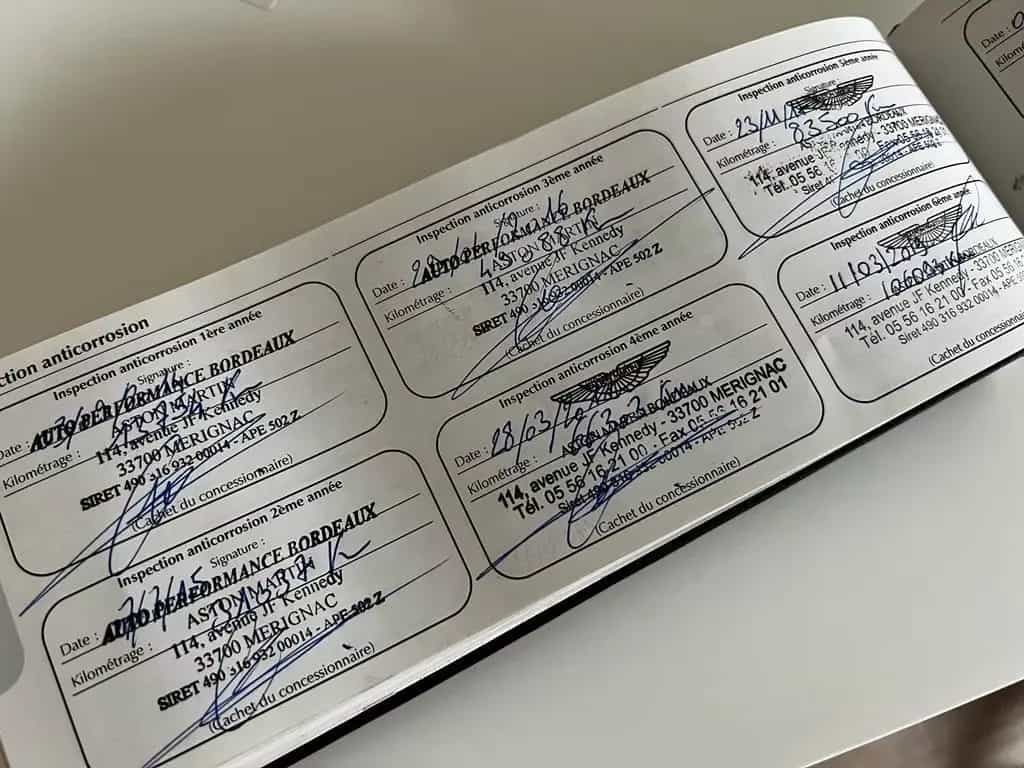 ction anticorrosion
Inspection anticorrosion 1ère année
Signature :
AUTO PERFORMANCE BORDEAUX
ASTON MARTIN
Date :
114, avenue JF Kennedy
Kilométrage :
33700 MERIGNAC
SIRET 490 316 932 00014 - APE 502 Z
(Cachet du concessionnaire)
Inspection anticorrosion 2ème année
Signature :
AUTO PERFORMANCE BORDEAUX
ASTON MARTIN
Date : 7/7/15
114, avenue JF Kennedy
Kilométrage :
33700 MERIGNAC
SIRET 490 316 932 00014 - APE 502 Z
(Cachet du concessionnaire)
Inspection anticorrosion 3ème année
Signature :
AUTO PERFORMANCE BORDEAUX
ASTON MARTIN
Date :
114, avenue JF Kennedy
Kilométrage :
33700 MERIGNAC
SIRET 490 316 932 00014 - APE 502 Z
(Cachet du concessionnaire)
Inspection anticorrosion 4ème année
Date : 28/03/
Kilométrage :
114, avenue JF Kennedy - 33700 MERIGNAC
Tél. 05 56 16 21 00 - Fax 05 56 16 21 01
Siret 490 316 932 00014 - APE 502 Z
(Cachet du concessionnaire)
Inspection anticorrosion 5ème année
Signature :
Date : 23/11/
Kilométrage : 83500 K
114, avenue JF Kennedy - 33700 MERIGNAC
Tél. 05 56
Siret
(Cachet du concessionnaire)
Inspection anticorrosion 6ème année
Date : 11/03/
Kilométrage :
114, avenue JF Kennedy - 33700 MER
Tél. 05 56 16 21 00 - Fax 05 56 16
Siret 490 316 932 00014 - APE
(Cachet du concessionnaire
Date :
Kilom